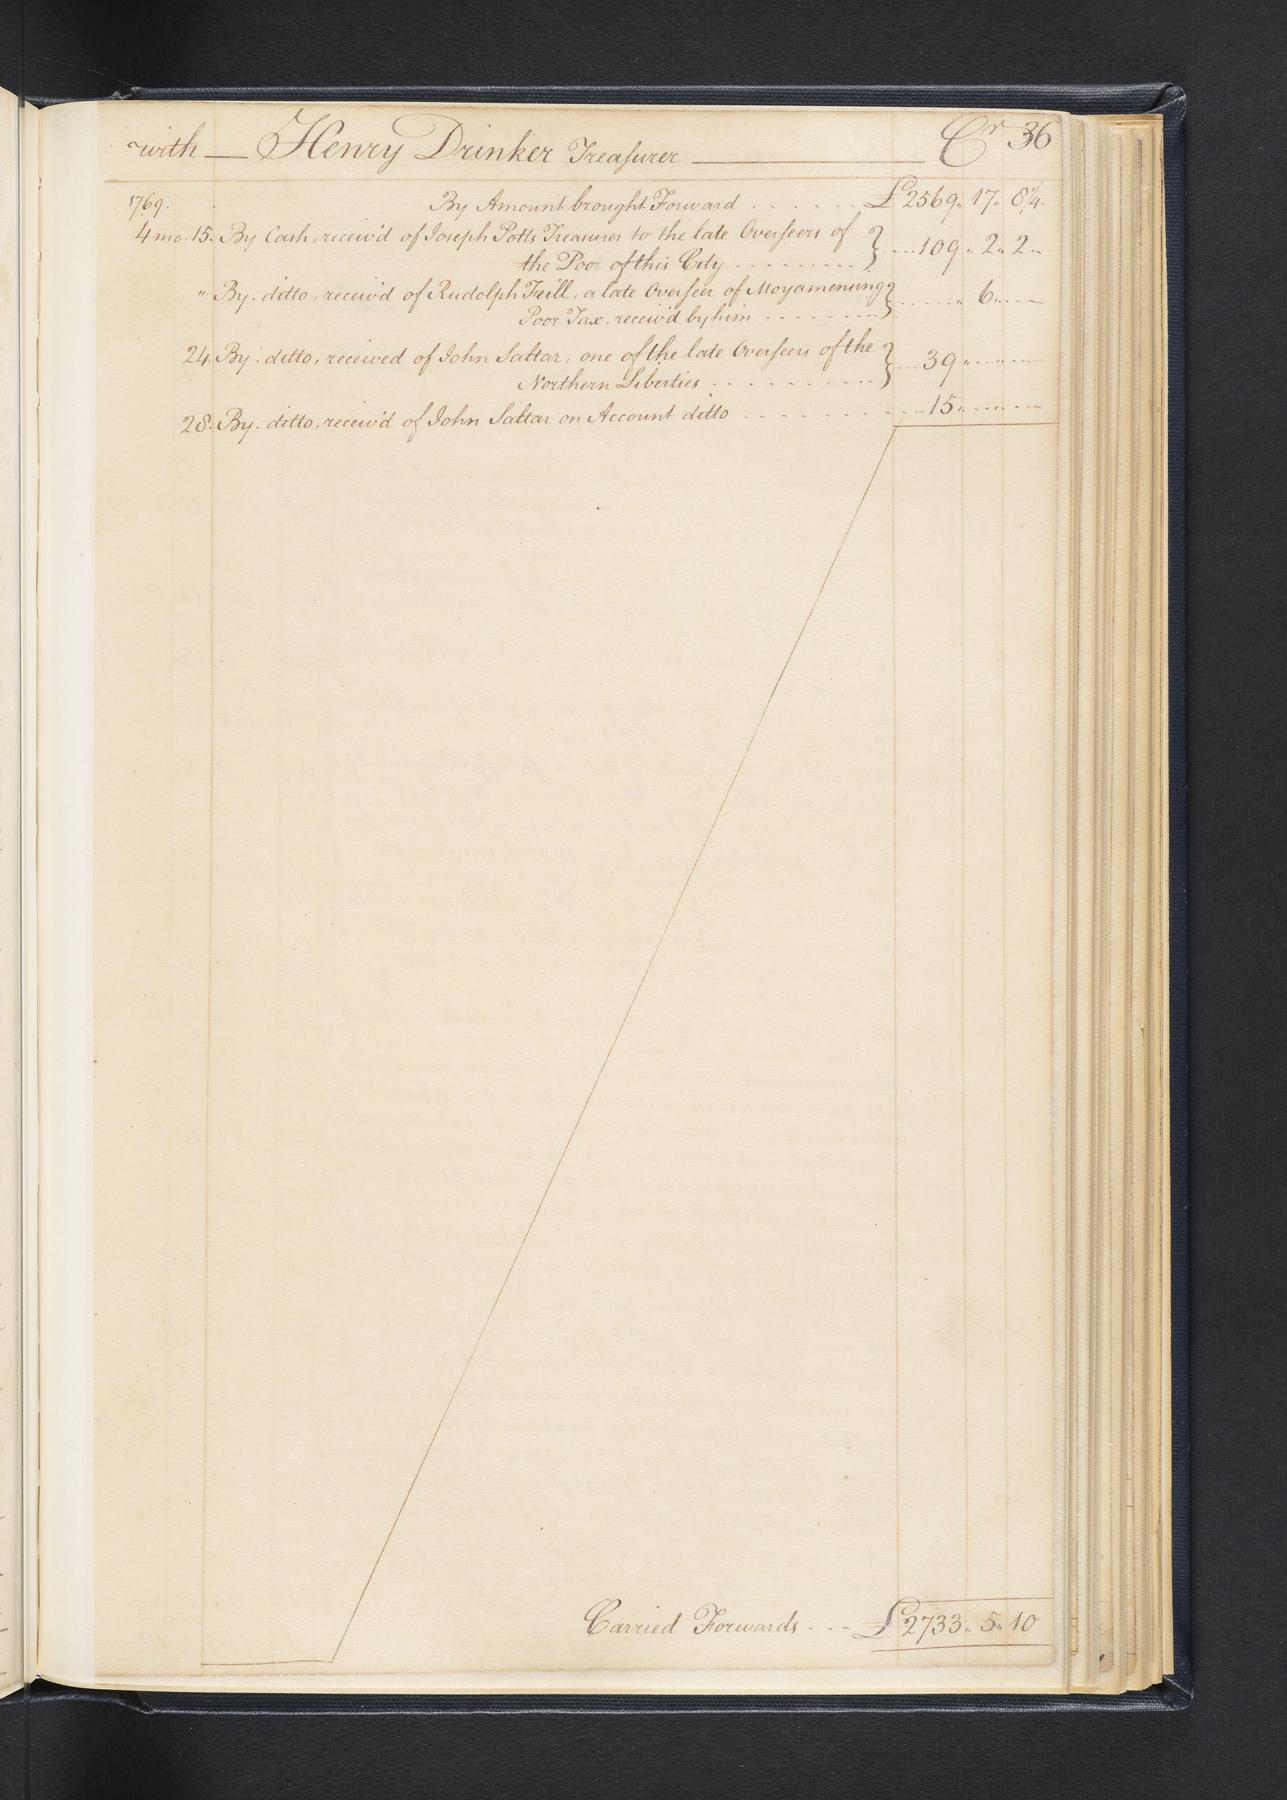 with — Henry Drinker Treasurer — Cr 36
1769. By Amount brought Forward . . . . . . £2569„ 17„ 8 1/4.
4 mo. 15. By Cash, receiv'd of Joseph Potts Treasurer to the late Overseers of
the Poor of this City . . . . . . . . . } . . . . 109„ 2„ 2„
„ By. ditto, receiv'd of Rudolph Feill, a late Overseer of Moyamensing
Poor Tax, receiv'd by him . . . . . . . . } . . . . . . „ 6„ . . . .
24. By. ditto, received of John Saltar, one of the late Overseers of the
Northern Liberties . . . . . . . . . . } . . . 39„ . . . . . .
28. By. ditto, receiv'd of John Saltar on Account ditto . . . . . . . . . . . 15„ . . . . . .
Carried Forwards . . . £2733„ 5„ 10